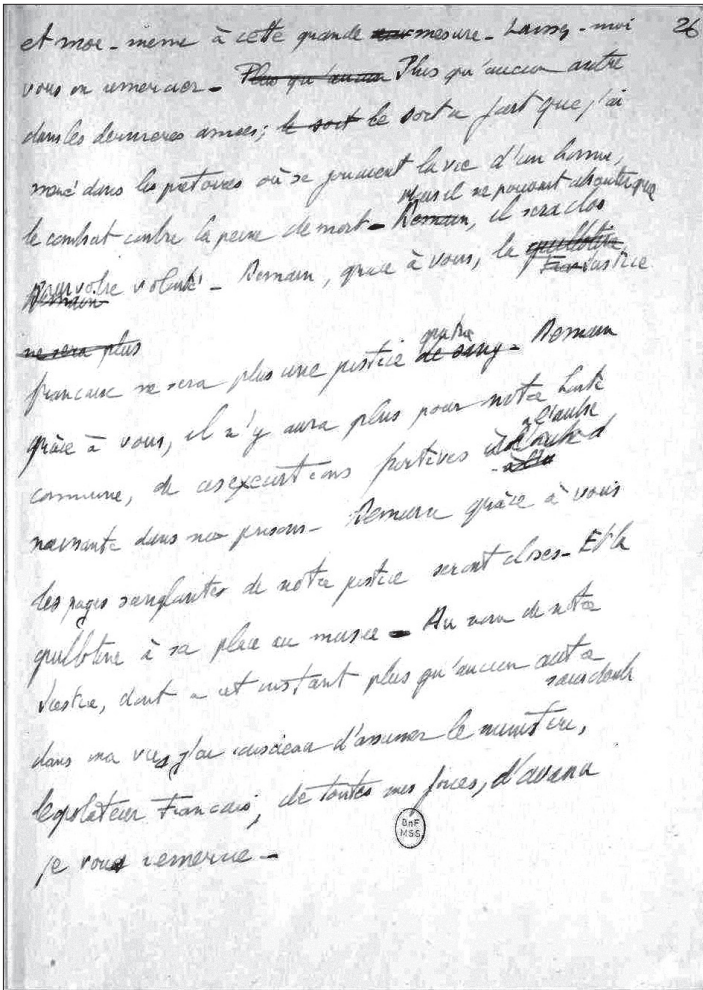 26
et moi-même à cette grande mesure - Laissez-moi
vous en remercier - Plus qu'aucun Plus qu'aucun autre
dans les dernières années, le sort le sort a fait que j'ai
dans les prétoires où se jouaient la vie d'un homme,
mais il ne pouvait
le combat contre la peine de mort - Demain, il sera clos
Demain par votre volonté - Demain, grâce à vous, la guillotine
Justice
ne sera plus
française ne sera plus une justice de sang - Demain
grâce à vous, il n'y aura plus pour notre honte
à l'aube
commune, des exécutions furtives à l'aube
dans nos prisons - Demain grâce à vous
les pages sanglantes de notre justice seront closes - Et la
guillotine à sa place au musée - Au nom de notre
Justice, dont à cet instant plus qu'aucun autre
sans doute
dans ma vie, j'ai conscience d'assumer le ministère,
législateur Français, de toutes mes forces, d'avance
BnF
MSS
je vous remercie -